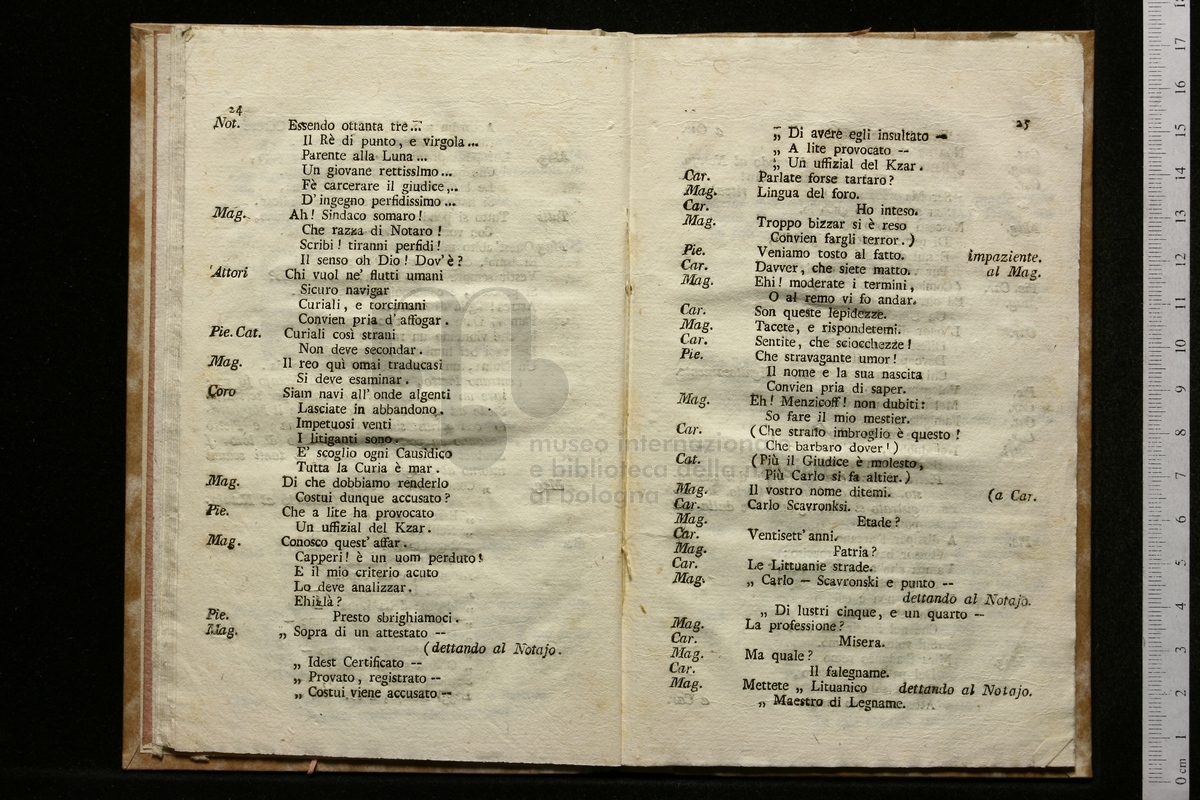 24
Not. Essendo ottanta tre...
Il Rè di punto, e virgola...
Parente alla Luna...
Un giovane rettissimo...
Fè carcerare il giudice...
D' ingegno perfidissimo...
Mag. Ah! Sindaco somaro!
Che razza di Notaro!
Scribi! tiranni perfidi!
Il senso oh Dio! Dov'è?
Attori Chi vuol ne' flutti umani
Sicuro navigar
Curiali, e torcimani
Convien pria d' affogar.
Pie. Cat. Curiali così strani
Non deve secondar.
Mag. Il reo quì omai traducasi
Si deve esaminar.
Coro Siam navi all' onde algenti
Lasciate in abbandono.
Impetuosi venti
I litiganti sono.
E' scoglio ogni Causidico
Tutta la Curia è mar.
Mag. Di che dobbiamo renderlo
Costui dunque accusato?
Pie. Che a lite ha provocato
Un uffizial del Kzar.
Mag. Conosco quest' affar.
Capperi! è un uom perduto!
E il mio criterio acuto
Lo deve analizzar.
Ehi là?
Pie. Presto sbrighiamoci.
Mag. „ Sopra di un attestato --
(dettando al Notajo.
„ Idest Certificato --
„ Provato, registrato --
„ Costui viene accusato --
25
„ Di avere egli insultato --
„ A lite provocato --
„ Un uffizial del Kzar.
Car. Parlate forse tartaro?
Mag. Lingua del foro.
Car. Ho inteso.
Mag. Troppo bizzar si è reso
Convien fargli terror.)
Pie. Veniamo tosto al fatto. impaziente.
Car. Davver, che siete matto. al Mag.
Mag. Ehi! moderate i termini,
O al remo vi fo andar.
Car. Son queste lepidezze.
Mag. Tacete, e rispondetemi.
Car. Sentite, che sciocchezze!
Pie. Che stravagante umor!
Il nome e la sua nascita
Convien pria di saper.
Mag. Eh! Menzicoff! non dubiti:
So fare il mio mestier.
Car. (Che strano imbroglio è questo!
Che barbaro dover!)
Cat. (Più il Giudice è molesto,
Più Carlo si fa altier.)
Mag. Il vostro nome ditemi. (a Car.
Car. Carlo Scavronksi.
Mag. Etade?
Car. Ventisett' anni.
Mag. Patria?
Car. Le Littuanie strade.
Mag. „ Carlo — Scavronski e punto --
dettando al Notajo.
„ Di lustri cinque, e un quarto --
Mag. La professione?
Car. Misera.
Mag. Ma quale?
Car. Il falegname.
Mag. Mettete „ Lituanico dettando al Notajo.
„ Maestro di Legname.
museo internaziona
e biblioteca della m
di bologna
0 cm 1 2 3 4 5 6 7 8 9 10 11 12 13 14 15 16 17